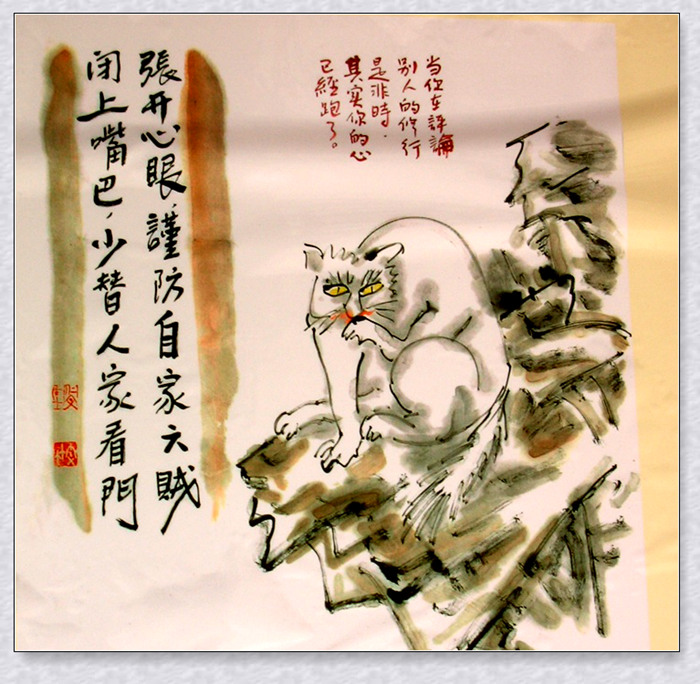 当你在評論
别人的修行
是非時，
其实你的心
已經跑了。
張开心眼，謹防自家六賊
闭上嘴巴，少替人家看門